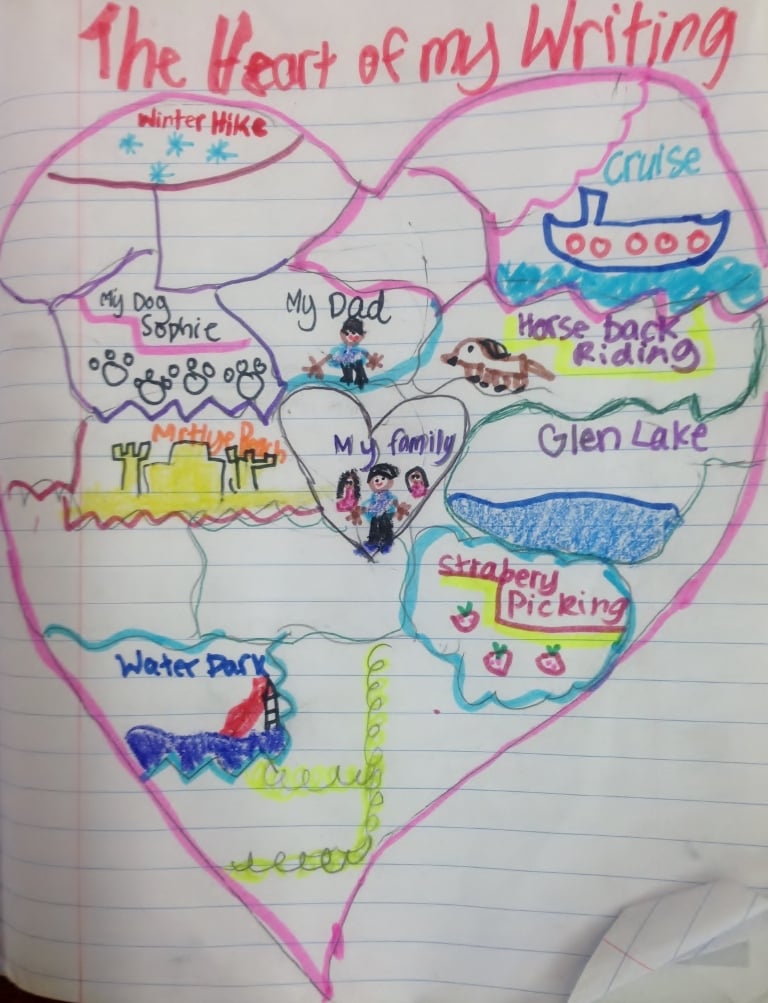 The Heart of my Writing
Winter Hike
Cruise
My Dog
Sophie
My Dad
Horse back
Riding
Mrtlye Beach
My family
Glen Lake
Strabery
Picking
Water Park